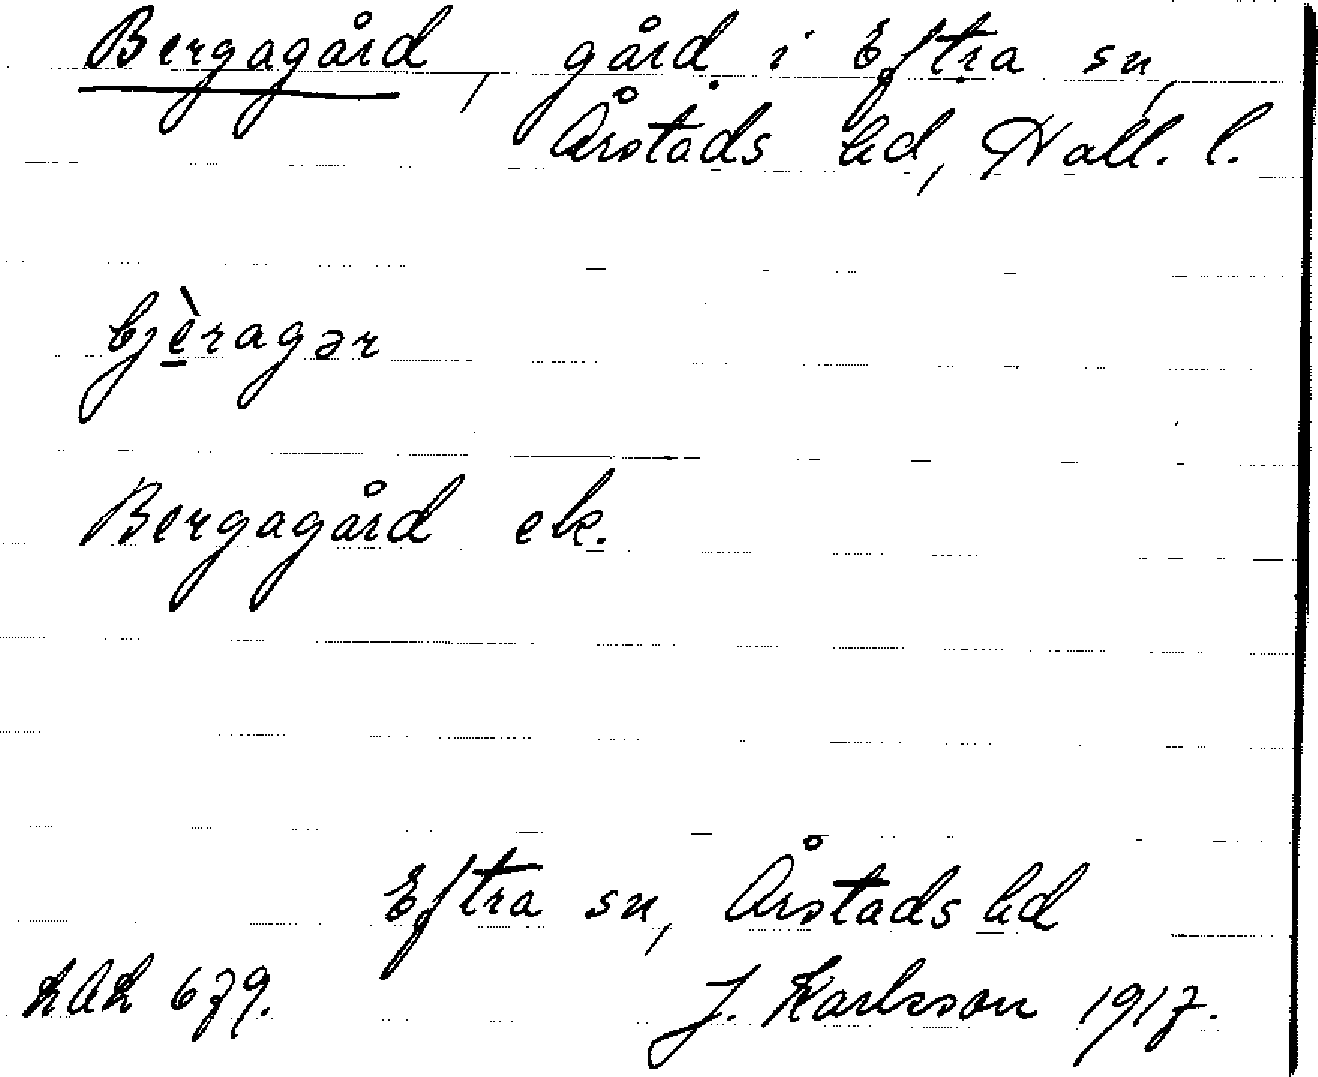 Bergagård, gård i Eftra sn,
Årstads hd, Hall. l.
bjèragər
Bergagård ek.
Eftra sn, Årstads hd
679. J. Karlsson 1917.